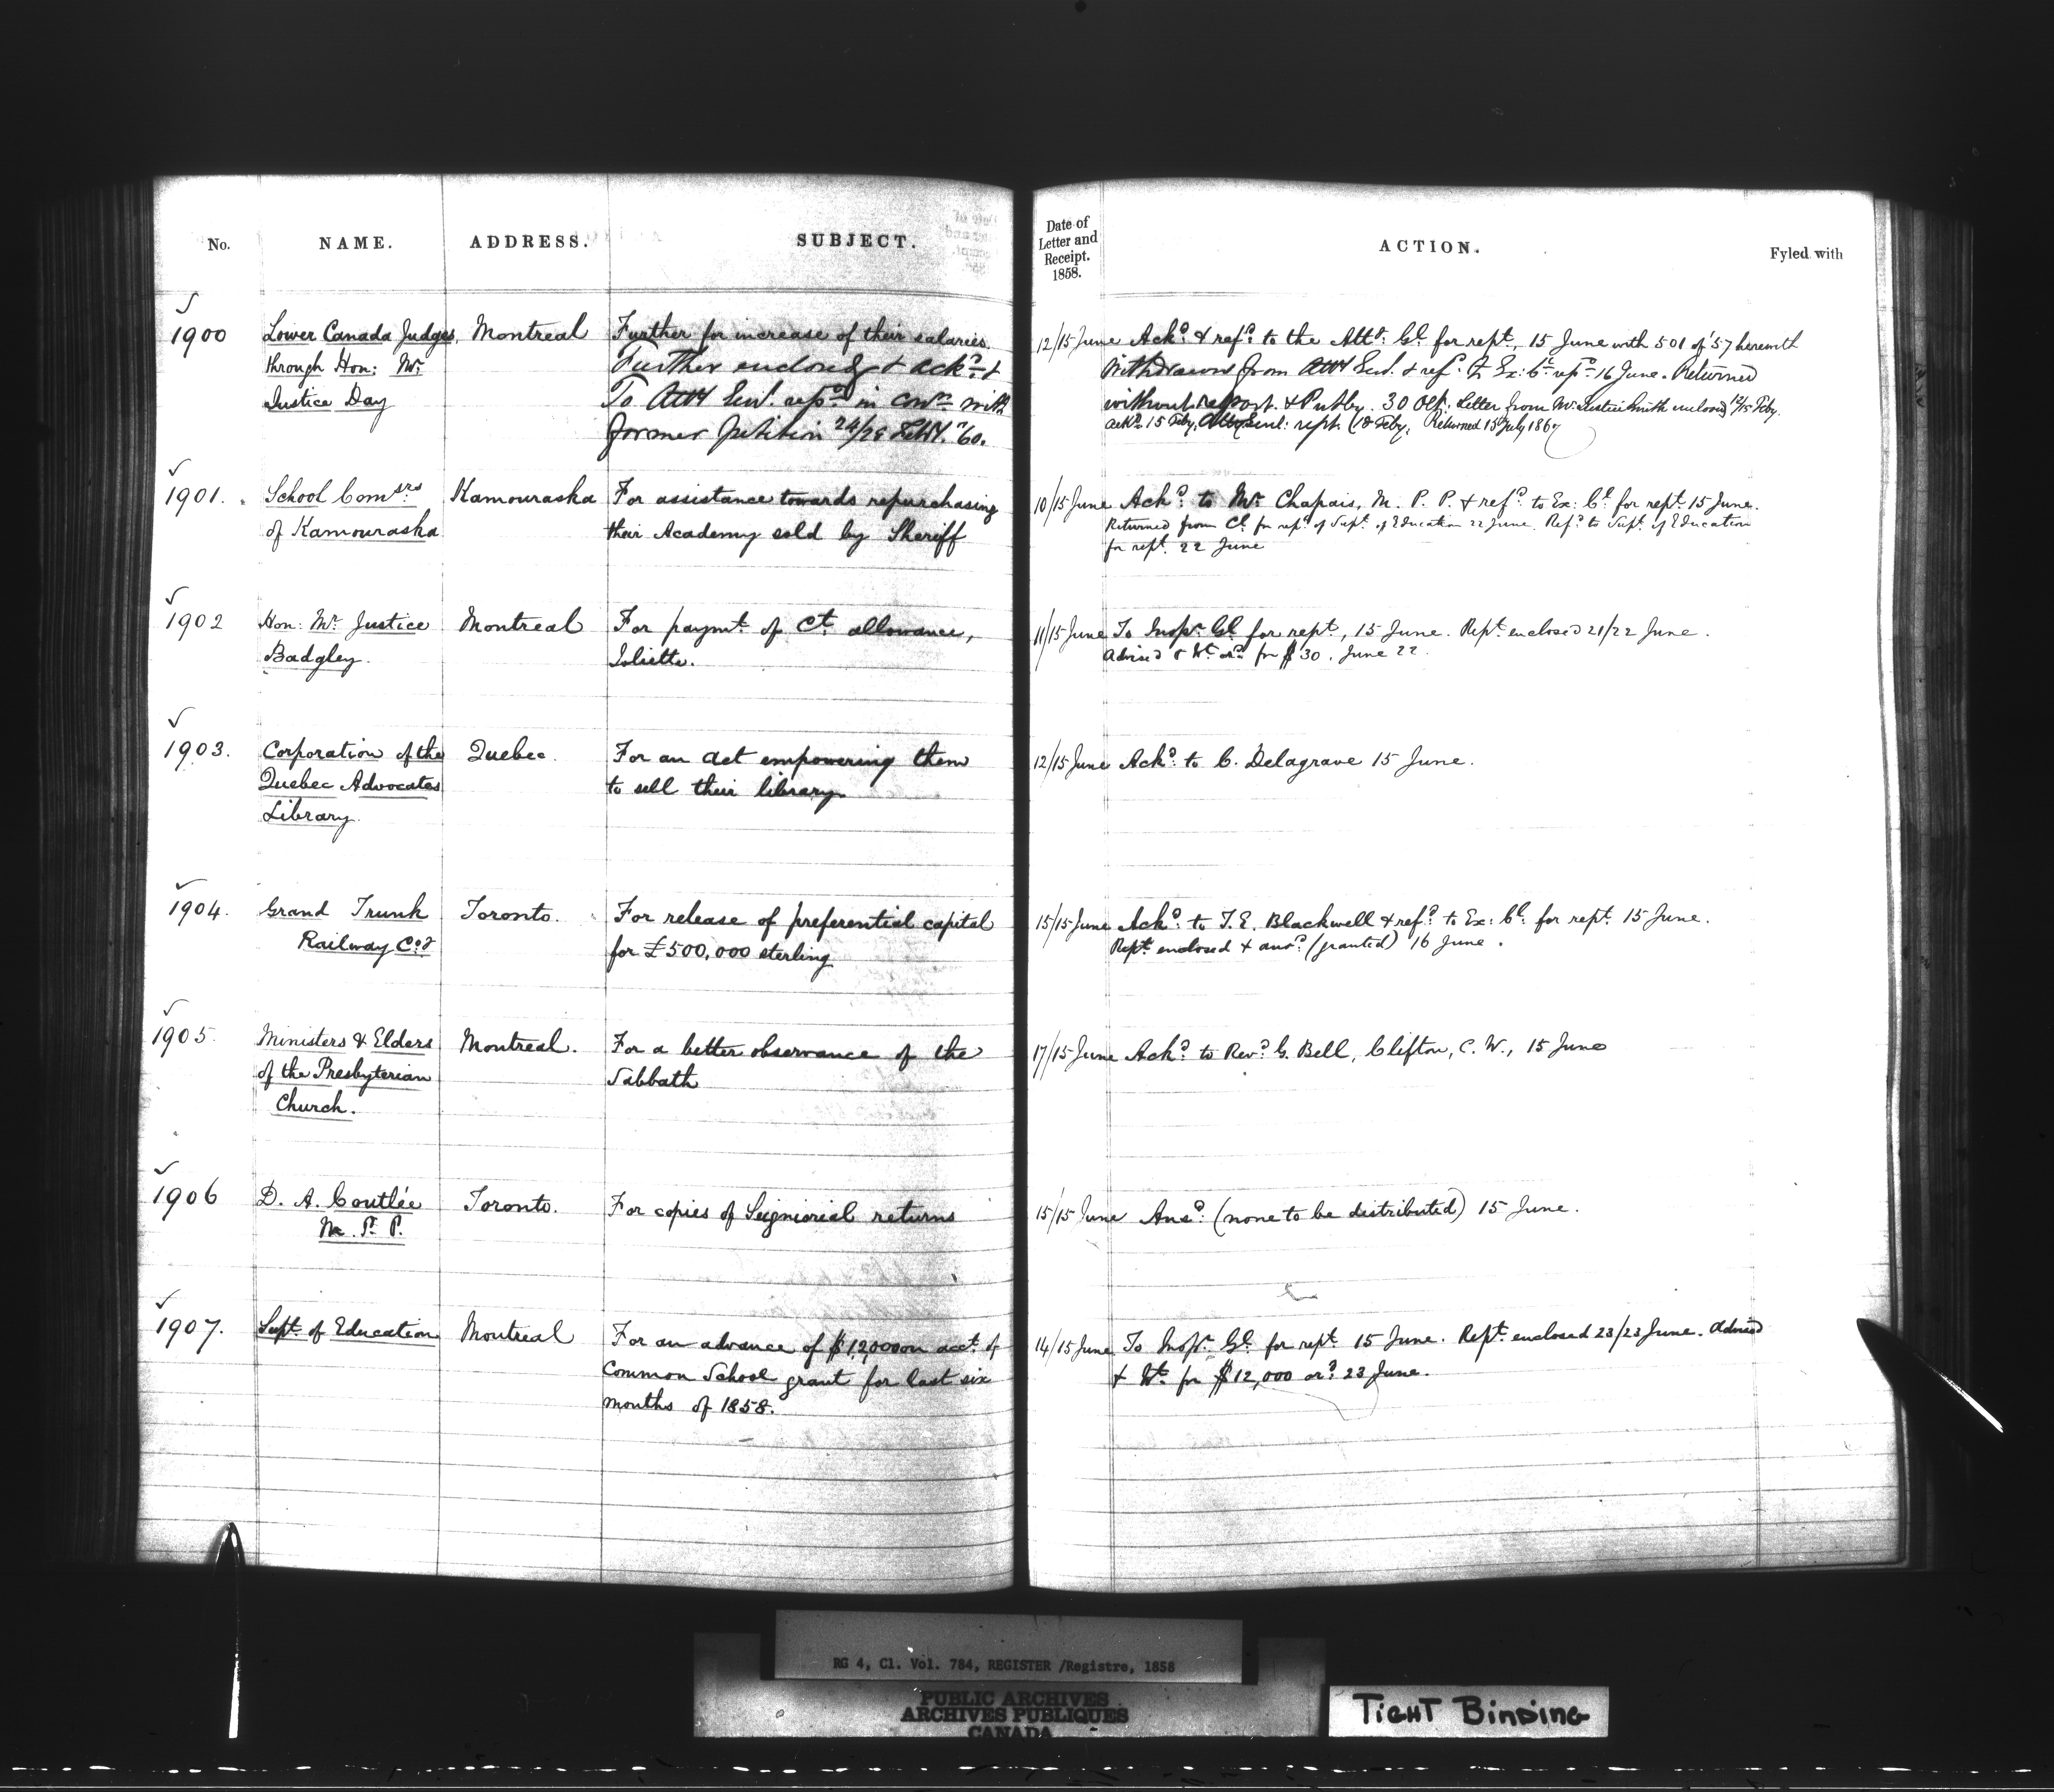 No. NAME. ADDRESS. SUBJECT.
1900 Lower Canada Judges, Montreal Further for increase of their salaries.
through Hon: Mr. Further enclosed & ackd. &
Justice Day To Atty Genl. repd. in conn. with
former petition 24/28 Feby. '60.
1901. School Comsrs Kamouraska For assistance towards repurchasing
of Kamouraska their Academy sold by Sheriff
1902 Hon: Mr. Justice Montreal For paymt. of Ct. allowance,
Badgley. Joliette.
1903. Corporation of the Quebec. For an act empowering them
Quebec Advocates to sell their library.
Library.
1904. Grand Trunk Toronto. For release of preferential capital
Railway Coy for £500,000 sterling
1905. Ministers & Elders Montreal. For a better observance of the
of the Presbyterian Sabbath
Church.
1906 D. A. Coutlée Toronto. For copies of Seigniorial returns
M. P. P.
1907. Supt. of Education Montreal For an advance of $12,000 on acct. of
Common School grant for last six
months of 1858.
Date of
Letter and
Receipt.
1858.
ACTION. Fyled with
12/15 June Ackd. & refd. to the Atty. Gl. for rept, 15 June with 501 of '57 herewith
Withdrawn from Atty Genl. & refd. to Ex: Cl. rept 16 June. Returned
without report. 30 Oct. Letter from Mr. Justice Smith enclosed 12/15 Feby.
Ackd. 15 Feby. Genl: rept. (18 Feby. Returned 15 July 186
10/15 June Ackd. to Mr. Chapais, M. P. P. & refd. to Ex: Cl. for rept. 15 June.
Returned from Cl. for rept. of Supt. of Education 22 June. Refd. to Supt. of Education
for rept. 22 June
11/15 June To Inspr. Gl. for rept, 15 June. Rept. enclosed 21/22 June.
Advised & Wt. ord. for $30. June 22.
12/15 June Ackd. to C. Delagrave 15 June.
15/15 June Ackd. to T. E. Blackwell & refd. to Ex: Cl. for rept. 15 June.
Rept. enclosed & ansd. (granted) 16 June.
17/15 June Ackd. to Revd. G. Bell, Clifton, C. W., 15 June
15/15 June Ansd. (none to be distributed) 15 June.
14/15 June To Inspr. Gl. for rept. 15 June. Rept. enclosed 23/23 June. Advised
& Wt. for $12,000 ord. 23 June.
RG 4, C1. Vol. 784, REGISTER /Registre, 1858
PUBLIC ARCHIVES
ARCHIVES PUBLIQUES
CANADA
TIGHT BINDING